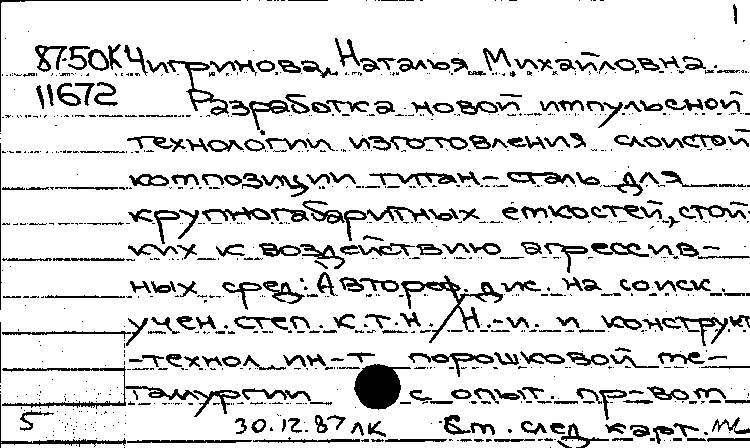 1
87-50К Чигринова, Наталья Михайловна.
11672 Разработка новой импульсной
технологии изготовления слоистой
композиции титан-сталь для
крупногабаритных емкостей, стой
ких к воздействию агрессив-
ных сред: Автореф. дис. на соиск.
учен. степ. к.т.н. / Н.-и. и конструкт
-технол ин-т порошковой ме-
таллургии с опыт. пр-вом
5 30.12.87 ЛК См. след карт.